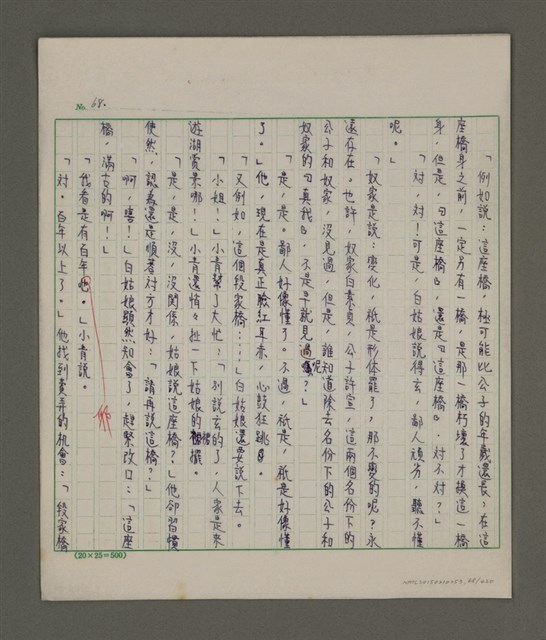 No. 68.
「例如說：這座橋，極可能比公子的年歲還長；在這
座橋身之前，一定另有一橋，是那一橋朽壞了才換這一橋
身，但是，曰這座橋，還是曰這座橋，對不對？」
「對，對！可是，白姑娘說得玄，鄙人頑劣，聽不懂
呢。」
「奴家是說：變化，祇是形体罷了，那不變的呢？永
遠存在。也許，奴家白素貞，公子許宣，這兩個名份下的
公子和奴家，沒見過，但是，誰知道除去名份下的公子和
奴家的『真我』，不是早就見過呢？」
「是，是。鄙人好像懂了。不過，祇是，祇是好像懂
了。」他，現在是真正臉紅耳赤，心鼓狂跳。
「又例如，這個段家橋……」白姑娘還要說下去。
「小姐！」小青幫了大忙：「別說玄的了，人家是來
遊湖賞景哪！」小青還悄々扯一下姑娘的裙襬。
「是，是，沒，沒關係，姑娘說這座橋？」他卻習慣
使然，認為還是順著對方才好：「請再說這橋？」
「啊，害！」白姑娘顯然知會了，趕緊改口：「這座
橋，滿古的啊！」
「我看是有百年吔。」小青說。
「對。百年以上了。」他找到賣弄的机會：「段家橋
(20×25=500)